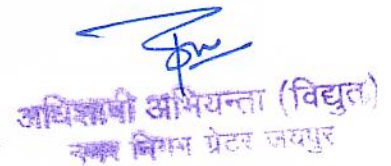 अधिशाषी अभियन्ता (विद्युत)
नगर निगम ग्रेटर जयपुर